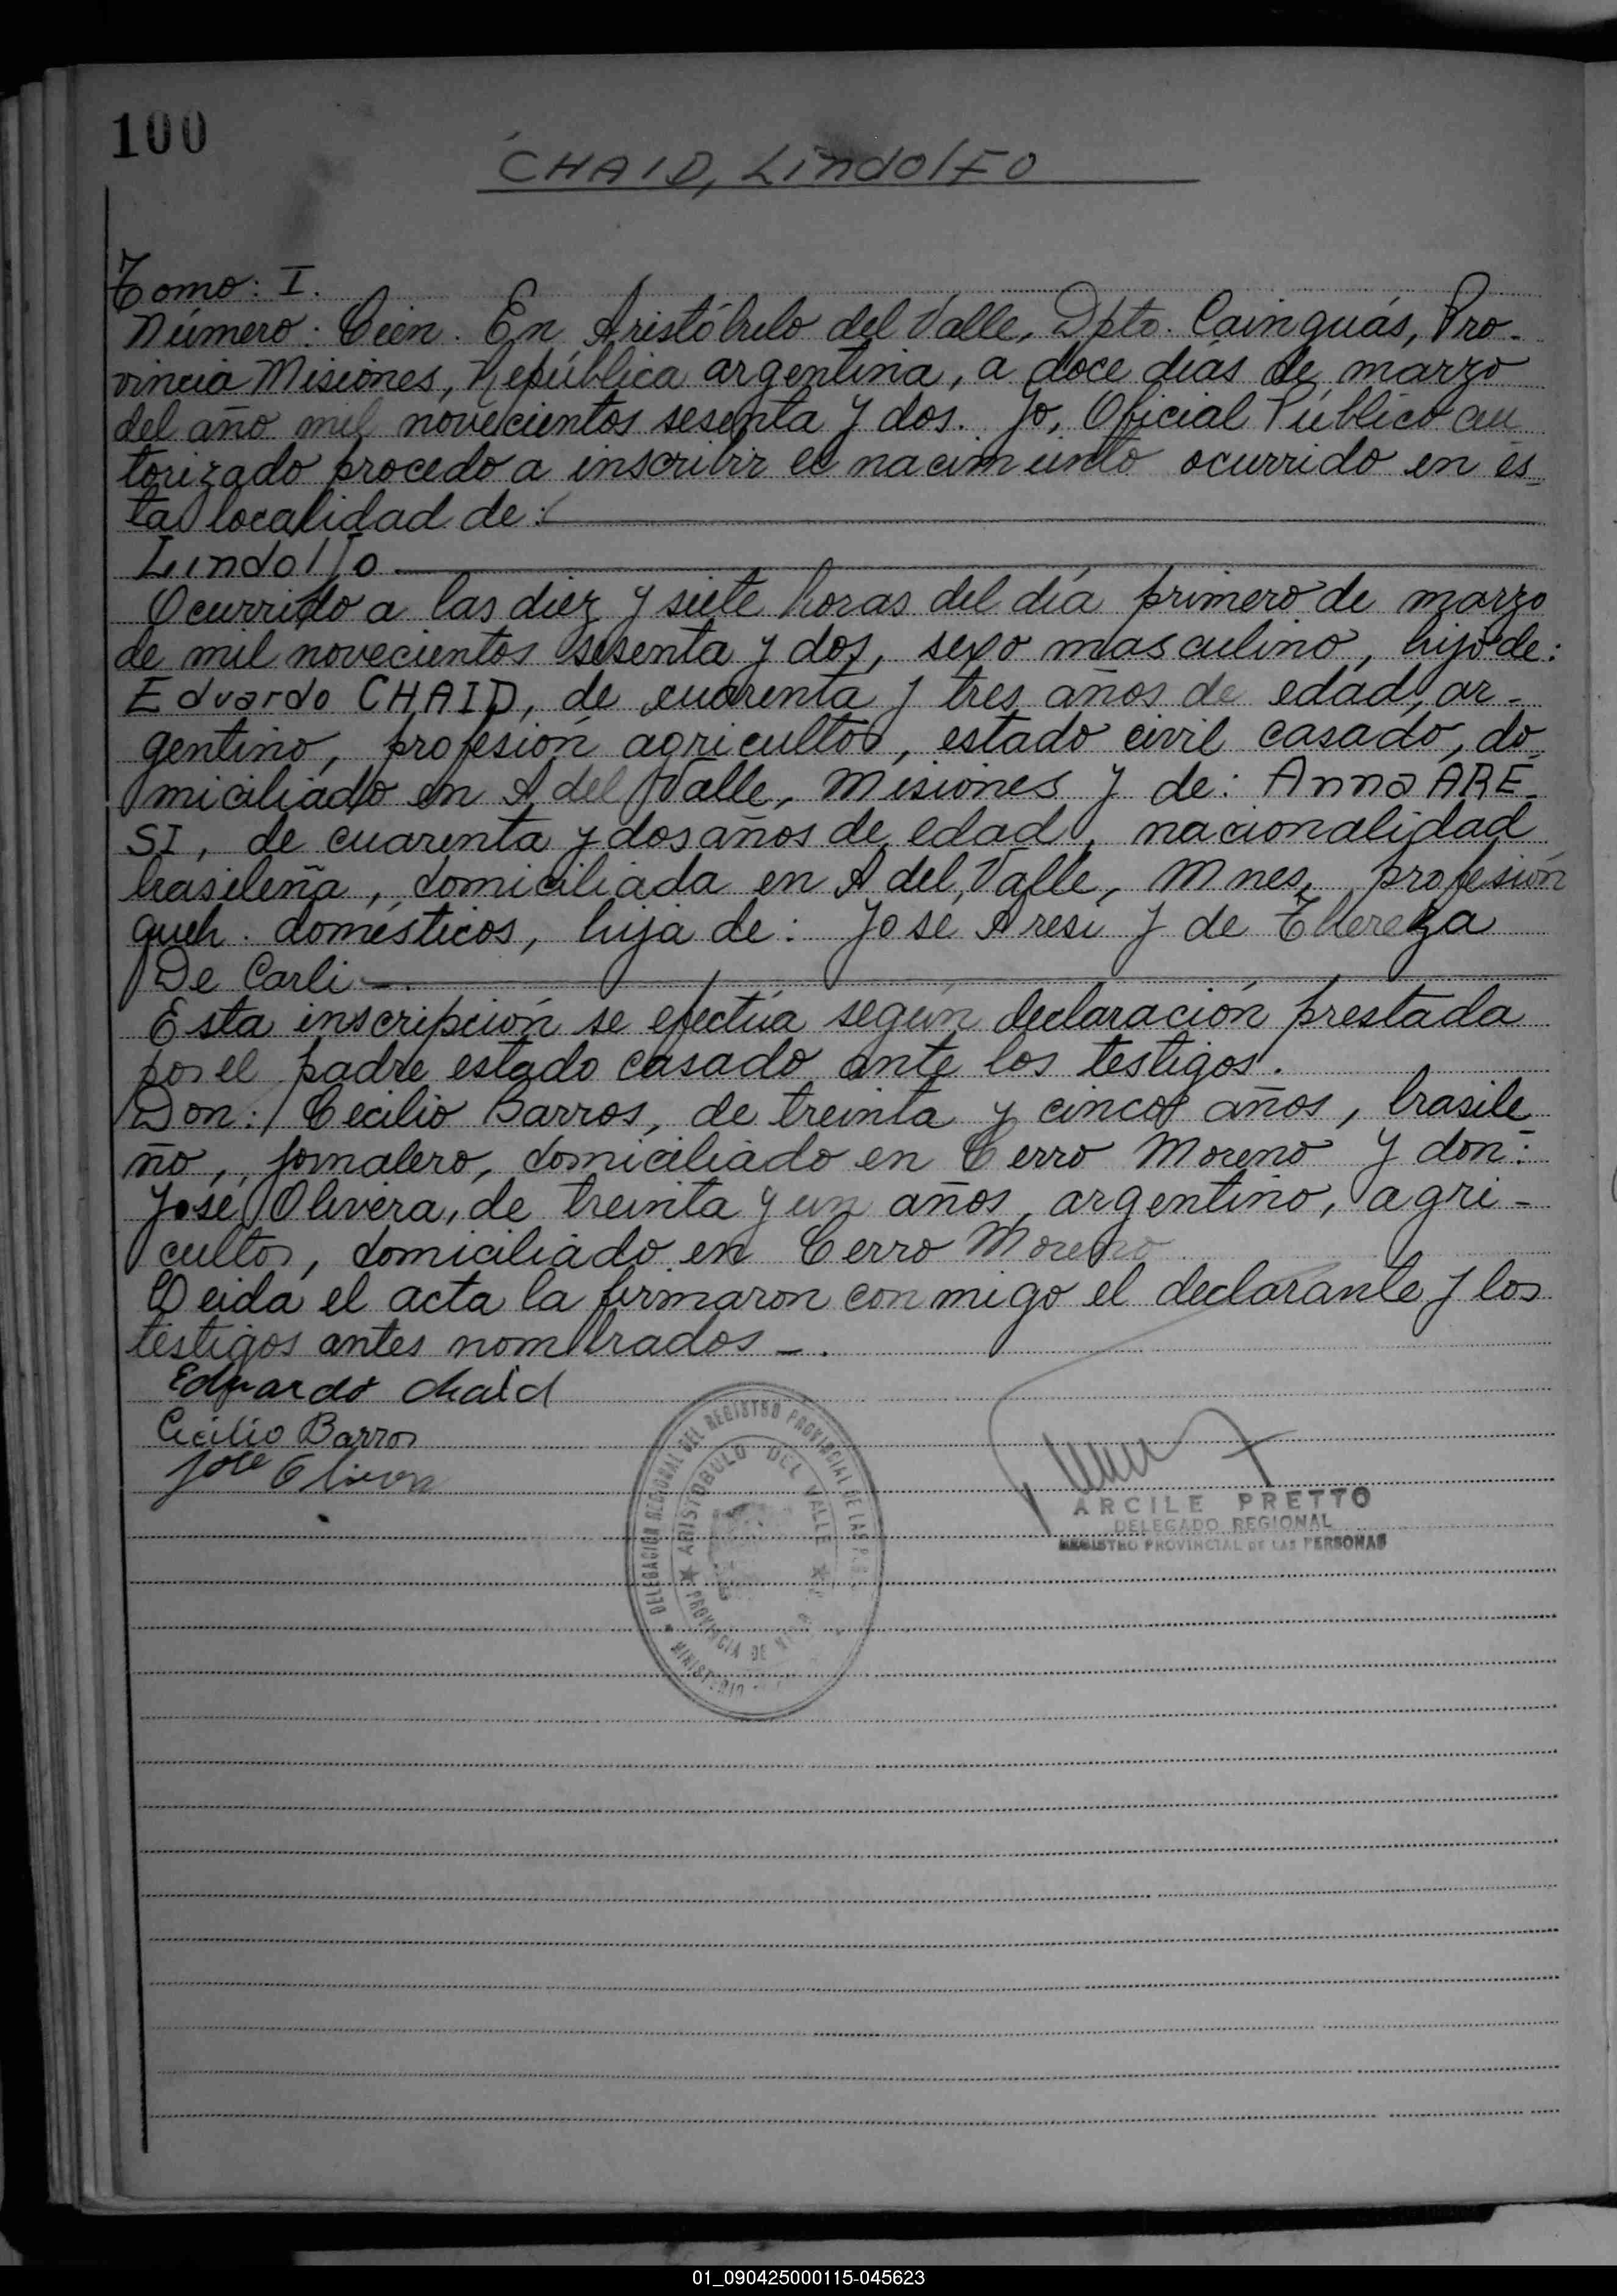 100
CHAID, Lindolfo
Tomo: I.
Número: Cien. En Aristóbulo del Valle, Dpto. Cainguás, Pro-
vincia Misiones, República argentina, a doce días de marzo
del año mil novecientos sesenta y dos. Yo, Oficial Público au
torizado procedo a inscribir el nacimiento ocurrido en és-
ta localidad de:
Lindolfo
Ocurrido a las diez y siete horas del día primero de marzo
de mil novecientos sesenta y dos, sexo masculino, hijo de:
Eduardo CHAID, de cuarenta y tres años de edad, ar-
gentino, profesión agricultor, estado civil casado, do-
miciliado en A del Valle, Misiones y de: Anna ARE-
SI, de cuarenta y dos años de edad, nacionalidad
brasileña, domiciliada en A del Valle, Mnes, profesión
queh. domésticos, hija de: Jose Aresi y de Thereza
De Carli -.
Esta inscripción se efectúa según declaración prestada
por el padre estado casado ante los testigos.
Don: Cecilio Barros, de treinta y cinco años, brasile
ño, jornalero, domiciliado en Cerro Moreno y don:
José Olivera, de treinta y un años, argentino, agri-
cultor, domiciliado en Cerro Moreno
Leida el acta la firmaron conmigo el declarante y los
testigos antes nombrados -.
Eduardo Chaid
Cecilio Barros
DELEGACIÓN REGIONAL DEL REGISTRO PROVINCIAL DE LAS
ARISTOBULO DEL VALLE
PROVINCIA DE
ARCILE PRETTO
DELEGADO REGIONAL
REGISTRO PROVINCIAL DE LAS PERSONAS
01_090425000115-045623